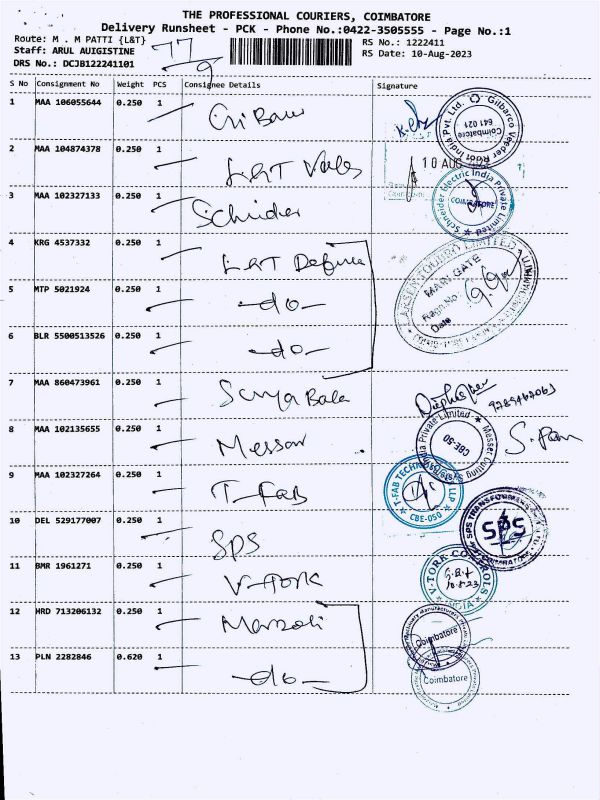 THE PROFESSIONAL COURIERS, COIMBATORE
Delivery Runsheet - PCK - Phone No.:0422-3505555 - Page No.:1
Route: M . M PATTI {L&T}
Staff: ARUL AUIGISTINE
DRS No.: DCJB122241101
77/9
RS No.: 1222411
RS Date: 10-Aug-2023
S No Consignment No Weight PCS Consignee Details Signature
1 MAA 106055644 0.250 1
Gilbarco Veeder Root India Pvt. Ltd. Coimbatore 641 021
2 MAA 104874378 0.250 1 L&T Valves
10 AUG
3 MAA 102327133 0.250 1
Schneider Electric India Private Limited COIMBATORE
4 KRG 4537332 0.250 1 L&T Defence
LARSEN & TOUBRO LIMITED
MAIN GATE
Regn.No.
Date
5 MTP 5021924 0.250 1 -do-
6 BLR 5500513526 0.250 1 -do-
7 MAA 860473961 0.250 1 Surya Bala
8 MAA 102135655 0.250 1 Messer
India Private Limited Messer Cutting CBE-50
9 MAA 102327264 0.250 1 T-Fab
T-FAB LLP CBE-050
10 DEL 529177007 0.250 1 SPS
SPS TRANSFORMERS COIMBATORE
SPS
11 BMR 1961271 0.250 1 V-Tork
V-TORK CONTROLS INDIA
10.8.23
12 HRD 713206132 0.250 1 Marzoli
Coimbatore
13 PLN 2282846 0.620 1 -do-
Coimbatore